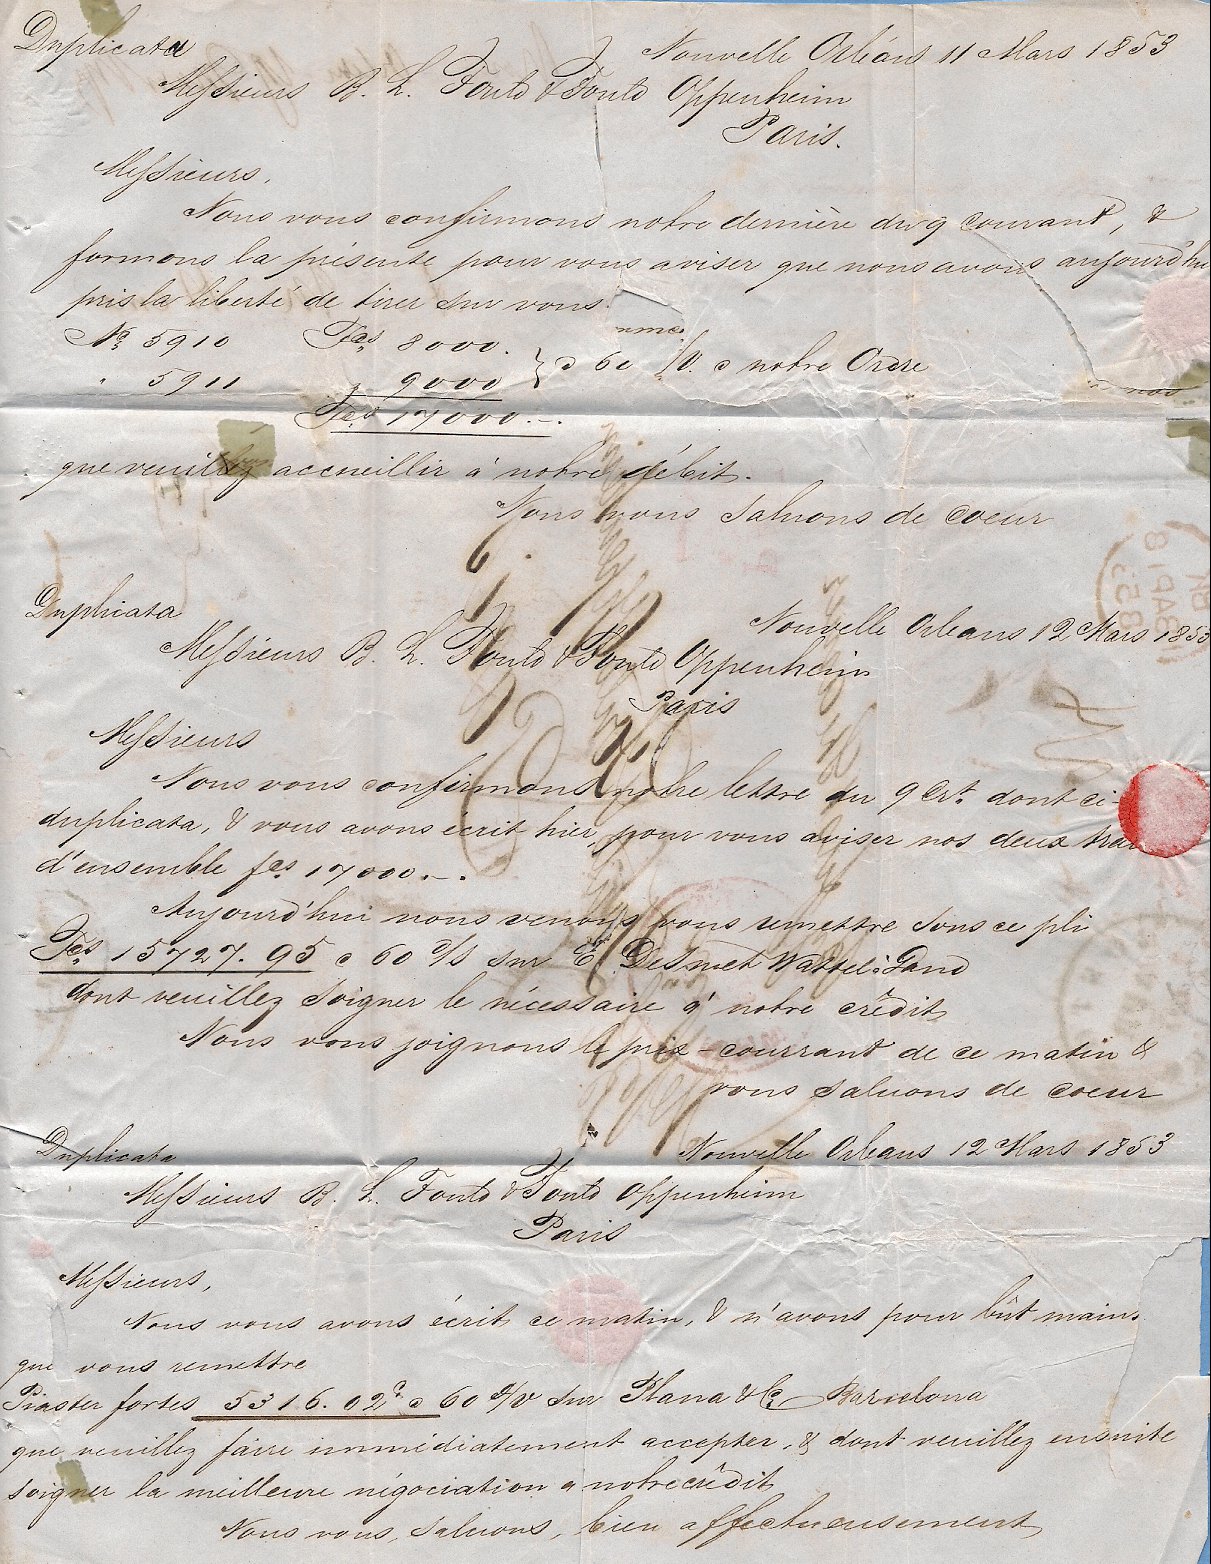 Duplicata
Nouvelle Orléans 11 Mars 1853
Messieurs B. L. Fould & Fould Oppenheim
Paris.
Messieurs,
Nous vous confirmons notre dernière du 9 courant, &
formons la présente pour vous aviser que nous avons aujourd'hui
pris la liberté de tirer sur vous.
No 5910 Fcs 8000.
" 5911 " 9000 } a 60 /v. a notre Ordre
Fcs 17000.-.
que veuillez accueillir à notre débit.
Nous vous saluons de coeur
Duplicata
Nouvelle Orleans 12 Mars 1853
Messieurs B. L. Fould & Fould Oppenheim
Paris
Messieurs
Nous vous confirmons notre lettre du 9 Crt. dont ci-
duplicata, & vous avons écrit hier, pour vous aviser nos deux
d'ensemble fcs. 17000.-.
Aujourd'hui nous venons vous remettre sous ce pli
Fcs 15727.95 a 60 d/s sur Desmet Gand
dont veuillez soigner le nécessaire a' notre crédit
Nous vous joignons le prix-courrant de ce matin &
vous saluons de coeur
Duplicata
Nouvelle Orleans 12 Mars 1853
Messieurs B. L. Fould & Fould Oppenheim
Paris
Messieurs,
Nous vous avons écrit ce matin, & n'avons pour bût
que vous remettre
Piaster fortes 5316.02c a 60 d/v sur Plana & Co. Barcelona
que veuillez faire immédiatement accepter, & dont veuillez ensuite
soigner la meilleure négociation a notre crédit
Nous vous saluons, bien affectueusement